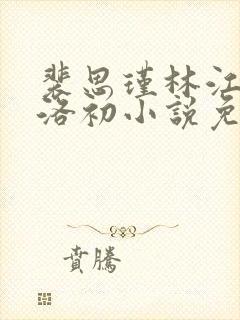 裴思瑾林江
洛初小説免
賁騰